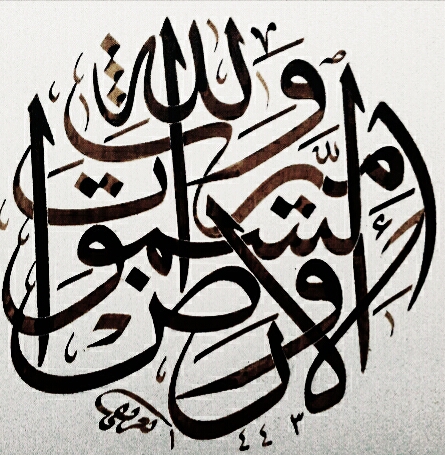 وَلِلَّهِ مِيرَاثُ السَّمٰوَاتِ وَالْأَرْضِ
١٤٤٣